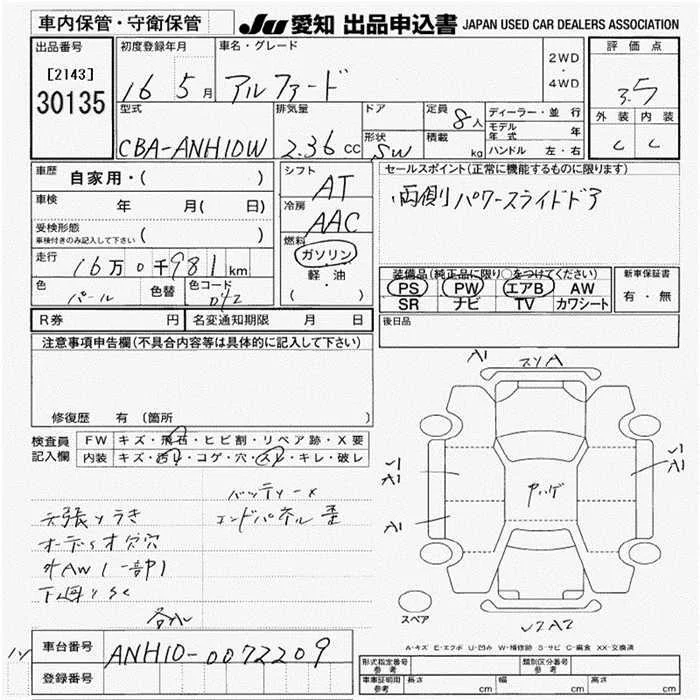 車内保管・守衛保管
JU 愛知 出品申込書 JAPAN USED CAR DEALERS ASSOCIATION
出品番号
[2143]
30135
初度登録年月
16 5月
車名・グレード
アルファード
2WD
・
4WD
評価点
3.5
外装 内装
C C
型式
CBA-ANH10W
排気量
2.36cc
ドア
形状
SW
定員 8人
積載 kg
ディーラー・並行
モデル年式 年
ハンドル 左・右
車歴 自家用・( )
車検 年 月( 日)
受検形態
車検付きのみ記入して下さい ( )
走行 16万0千981km
色 パール
色替
色コード 042
シフト AT
冷房 AAC
燃料
ガソリン
・
軽油
( )
セールスポイント(正常に機能するものに限ります)
両側パワースライドドア
装備品(純正品に限り○をつけてください)
PS PW エアB AW
SR ナビ TV カワシート
新車保証書
有・無
後日品
R券 円
名変通知期限 月 日
注意事項申告欄(不具合内容等は具体的に記入して下さい)
修復歴 有(箇所 )
検査員記入欄
FW キズ・飛石・ヒビ割・リペア跡・X要
内装 キズ・汚レ・コゲ・穴・スレ・キレ・破レ
バッテリー×
天張りうき
エンドパネル歪
オーディオ穴穴
外AW1一部1
下廻りSC
A1
スリA
√1
A1
A1
ヤハゲ
√1
A1
スペア
√2A2
A-キズ E-エクボ U-凹み W-補修跡 S-サビ C-腐食 XX-交換済
車台番号 ANH10-0072209
登録番号
形式指定番号 参考
類別区分番号 参考
車庫証明用 参考
長さ cm
幅 cm
高さ cm